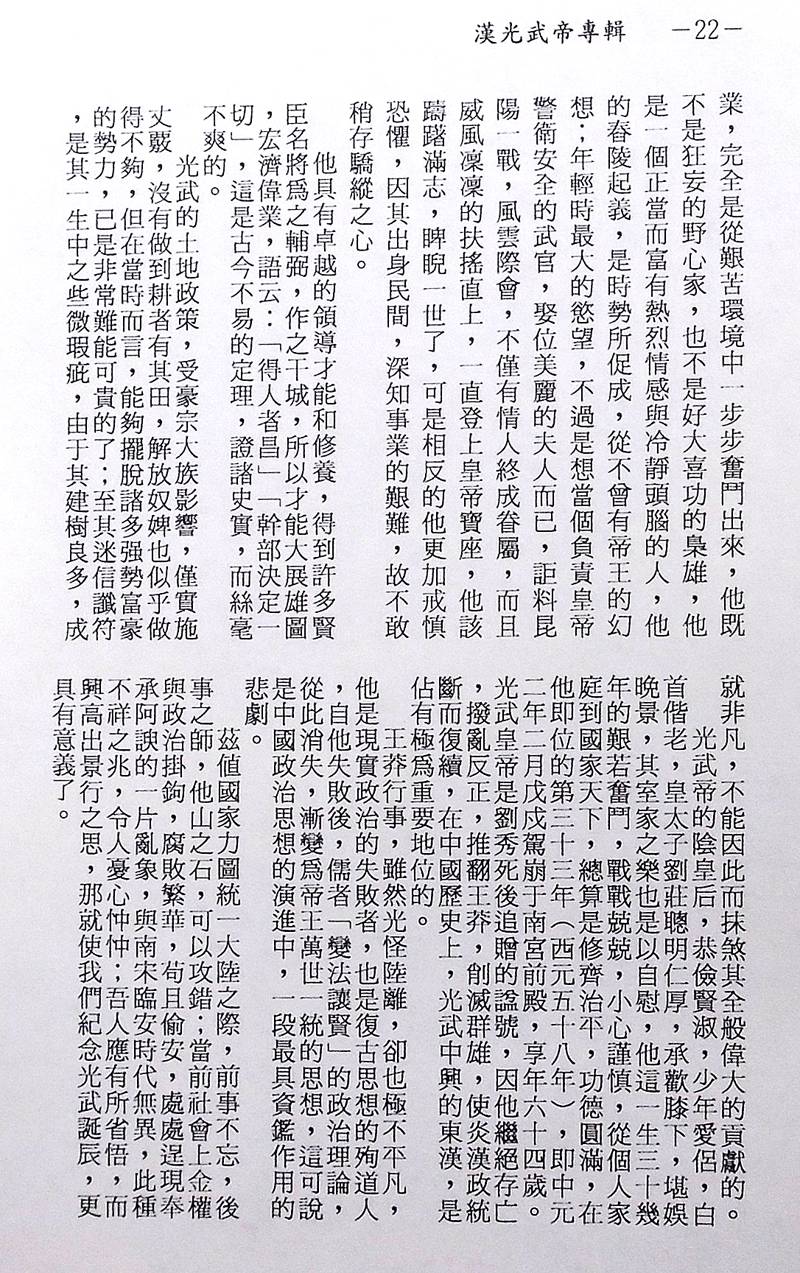 漢光武帝專輯 －22－
業，完全是從艱苦環境中一步步奮鬥出來，他既
不是狂妄的野心家，也不是好大喜功的梟雄，他
是一個正當而富有熱烈情感與冷靜頭腦的人，他
的舂陵起義，是時勢所促成，從不曾有帝王的幻
想；年輕時最大的慾望，不過是想當個負責皇帝
警衛安全的武官，娶位美麗的夫人而已，詎料昆
陽一戰，風雲際會，不僅有情人終成眷屬，而且
威風凜凜的扶搖直上，一直登上皇帝寶座，他該
躊躇滿志，睥睨一世了，可是相反的他更加戒慎
恐懼，因其出身民間，深知事業的艱難，故不敢
稍存驕縱之心。
他具有卓越的領導才能和修養，得到許多賢
臣名將爲之輔弼，作之干城，所以才能大展雄圖
，宏濟偉業，語云：「得人者昌」「幹部決定一
切」，這是古今不易的定理，證諸史實，而絲毫
不爽的。
光武的土地政策，受豪宗大族影響，僅實施
丈覈，沒有做到耕者有其田，解放奴婢也似乎做
得不夠，但在當時而言，能夠擺脫諸多强勢富豪
的勢力，已是非常難能可貴的了；至其迷信讖符
，是其一生中之些微瑕疵，由于其建樹良多，成
就非凡，不能因此而抹煞其全般偉大的貢獻的。
光武帝的陰皇后，恭儉賢淑，少年愛侶，白
首偕老，皇太子劉莊聰明仁厚，承歡膝下，堪娛
晚景，其室家之樂也是以自慰，他這一生三十幾
年的艱若奮鬥，戰戰兢兢，小心謹慎，從個人家
庭到國家天下，總算是修齊治平，功德圓滿，在
他即位的第三十三年（西元五十八年），即中元
二年二月戊戌駕崩于南宮前殿，享年六十四歲。
光武皇帝是劉秀死後追贈的謚號，因他繼絕存亡
，撥亂反正，推翻王莽，削滅群雄，使炎漢政統
斷而復續，在中國歷史上，光武中興的東漢，是
佔有極爲重要地位的。
王莽行事，雖然光怪陸離，卻也極不平凡，
他是現實政治的失敗者，也是復古思想的殉道人
，自他失敗後，儒者「變法讓賢」的政治理論，
從此消失，漸變爲帝王萬世一統的思想，這可說
是中國政治思想的演進中，一段最具資鑑作用的
悲劇。
茲値國家力圖統一大陸之際，前事不忘，後
事之師，他山之石，可以攻錯；當前社會上金權
與政治掛鉤，腐敗繁華，苟且偷安，處處逞現奉
承阿諛的一片亂象，與南宋臨安時代無異，此種
不祥之兆，令人憂心忡忡；吾人應有所省悟，而
興高出景行之思，那就使我們紀念光武誕辰，更
具有意義了。